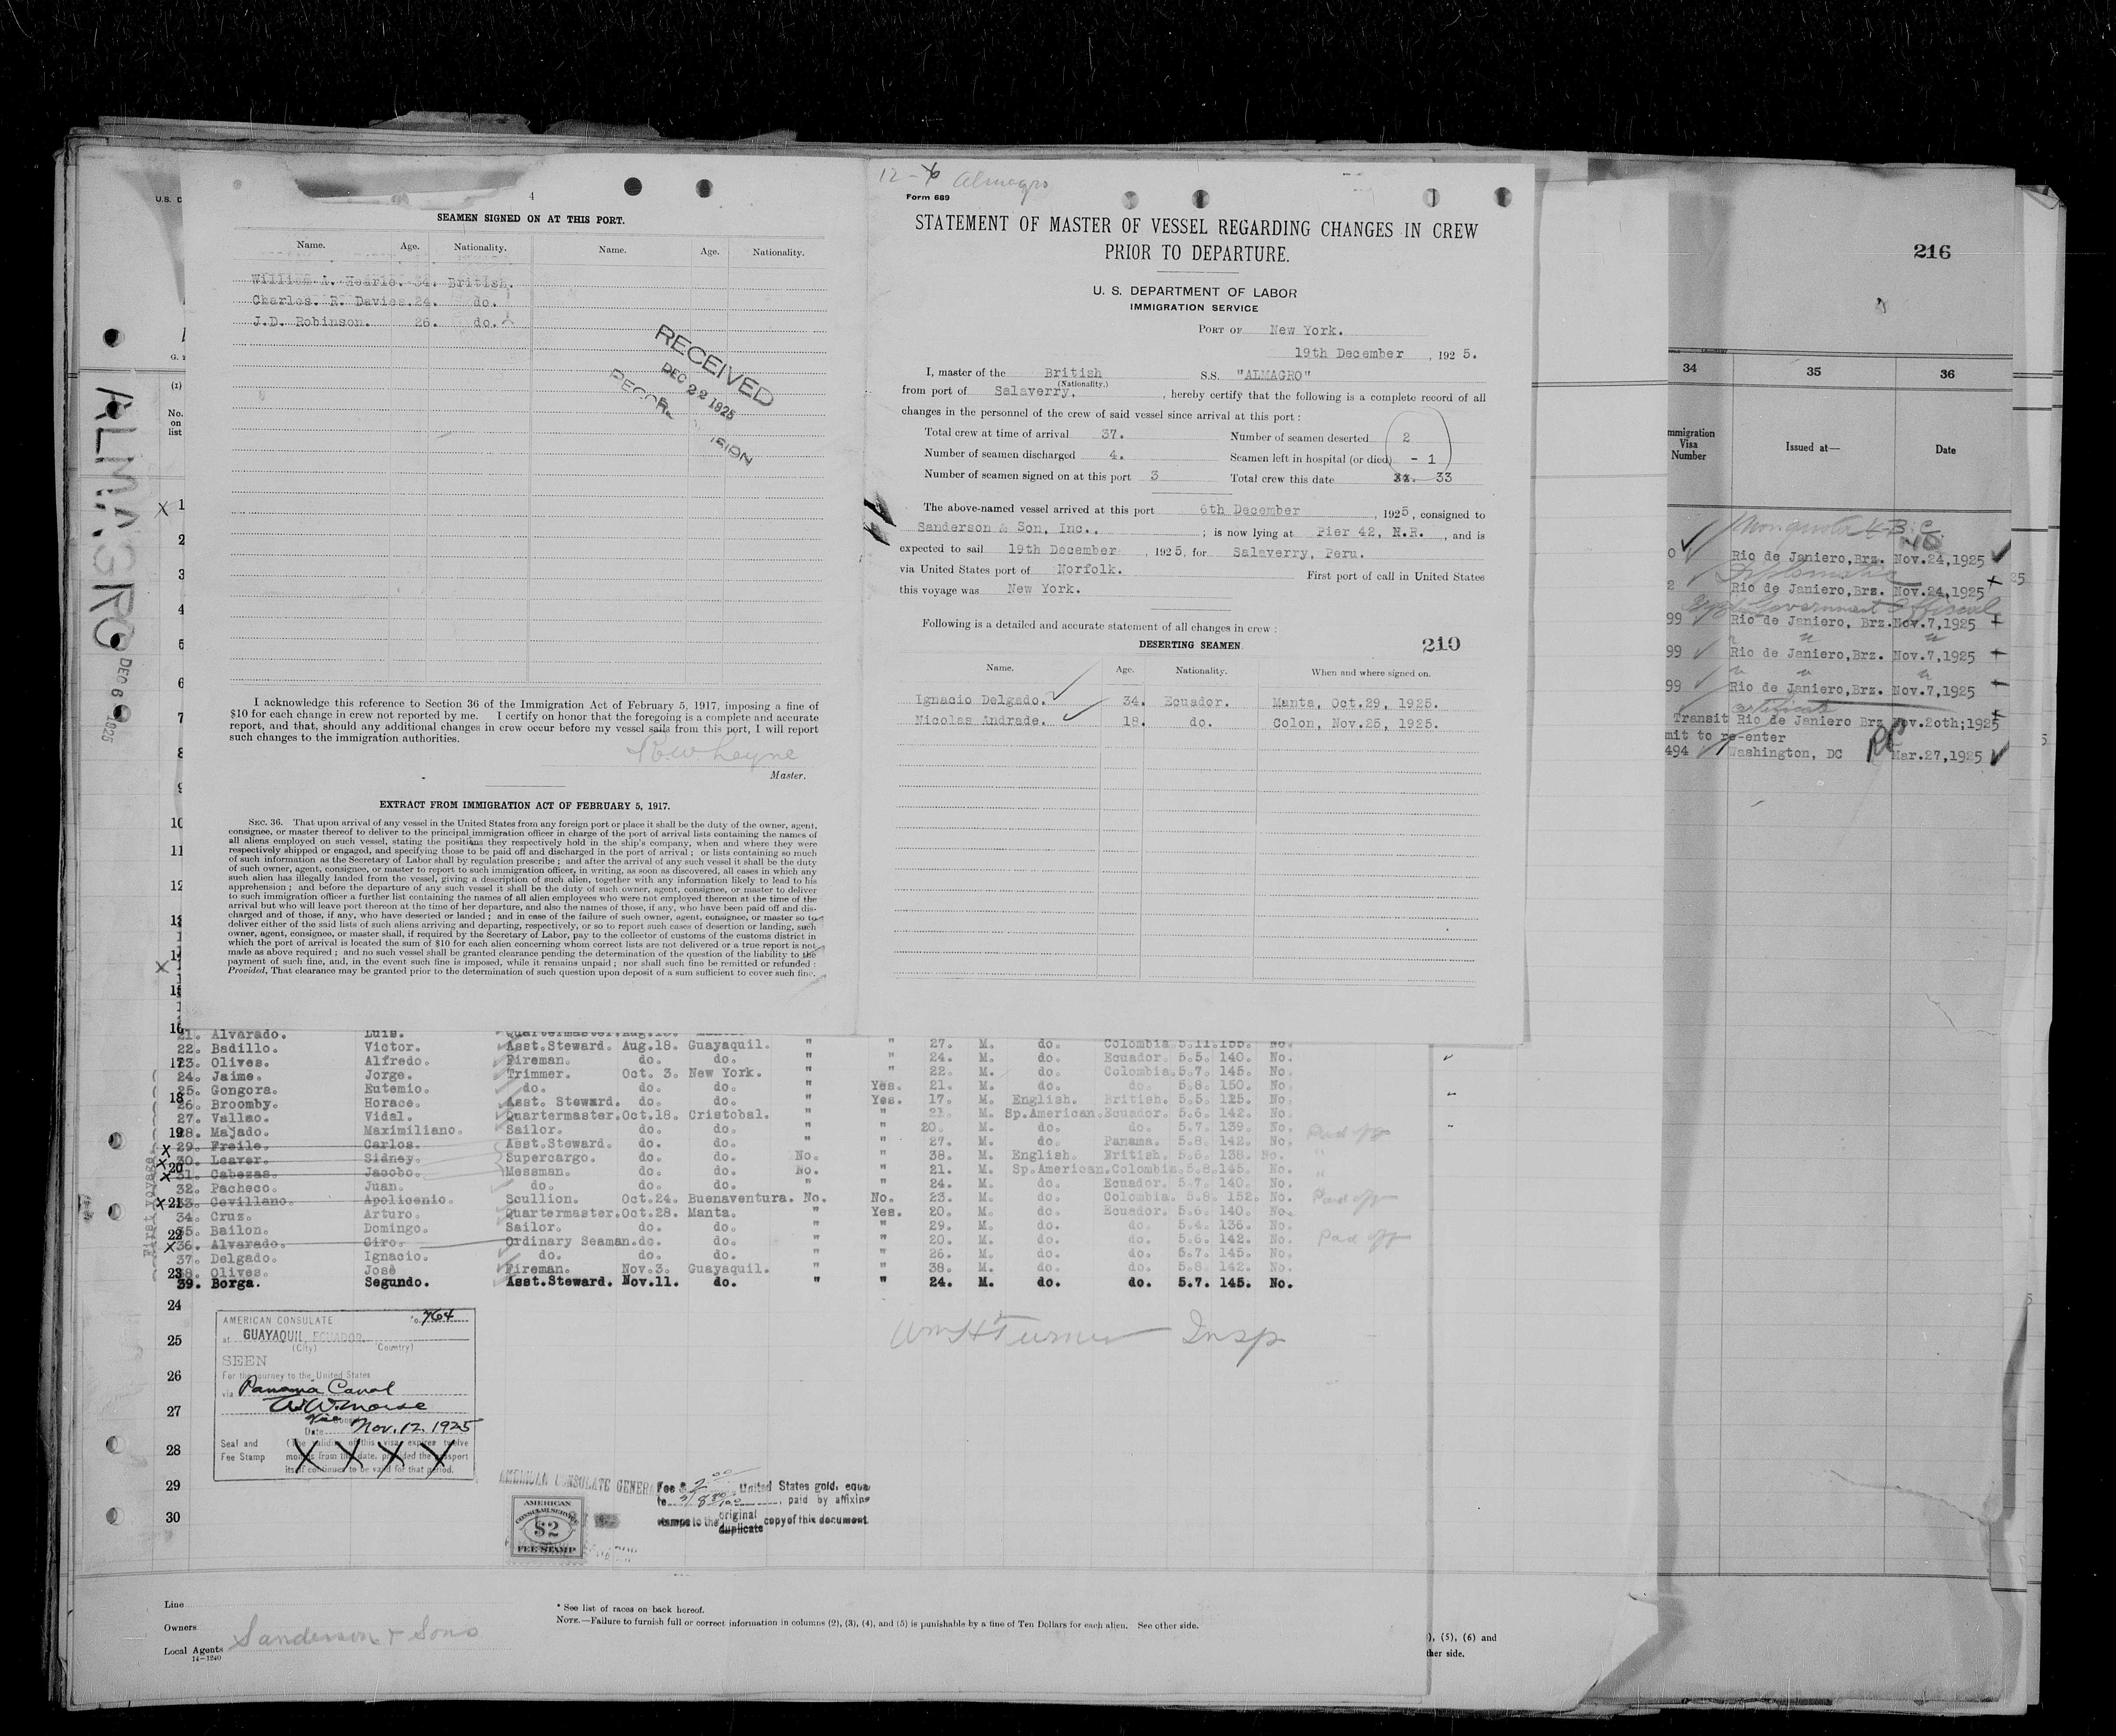 4
SEAMEN SIGNED ON AT THIS PORT.
Name. Age. Nationality. Name. Age. Nationality.
William A. Hearle. 34. British.
Charles. R. Davies. 24. do.
J.D. Robinson. 26. do.
RECEIVED
DEC 22 1925
I acknowledge this reference to Section 36 of the Immigration Act of February 5, 1917, imposing a fine of
$10 for each change in crew not reported by me. I certify on honor that the foregoing is a complete and accurate
report, and that, should any additional changes in crew occur before my vessel sails from this port, I will report
such changes to the immigration authorities.
Master.
EXTRACT FROM IMMIGRATION ACT OF FEBRUARY 5, 1917.
SEC. 36. That upon arrival of any vessel in the United States from any foreign port or place it shall be the duty of the owner, agent,
consignee, or master thereof to deliver to the principal immigration officer in charge of the port of arrival lists containing the names of
all aliens employed on such vessel, stating the positions they respectively hold in the ship's company, when and where they were
respectively shipped or engaged, and specifying those to be paid off and discharged in the port of arrival; or lists containing so much
of such information as the Secretary of Labor shall by regulation prescribe; and after the arrival of any such vessel it shall be the duty
of such owner, agent, consignee, or master to report to such immigration officer, in writing, as soon as discovered, all cases in which any
such alien has illegally landed from the vessel, giving a description of such alien, together with any information likely to lead to his
apprehension; and before the departure of any such vessel it shall be the duty of such owner, agent, consignee, or master to deliver
to such immigration officer a further list containing the names of all alien employees who were not employed thereon at the time of the
arrival but who will leave port thereon at the time of her departure, and also the names of those, if any, who have been paid off and dis-
charged and of those, if any, who have deserted or landed; and in case of the failure of such owner, agent, consignee, or master so to
deliver either of the said lists of such aliens arriving and departing, respectively, or so to report such cases of desertion or landing, such
owner, agent, consignee, or master shall, if required by the Secretary of Labor, pay to the collector of customs of the customs district in
which the port of arrival is located the sum of $10 for each alien concerning whom correct lists are not delivered or a true report is not
made as above required; and no such vessel shall be granted clearance pending the determination of the question of the liability to the
payment of such fine, and, in the event such fine is imposed, while it remains unpaid; nor shall such fine be remitted or refunded:
Provided, That clearance may be granted prior to the determination of such question upon deposit of a sum sufficient to cover such fine.
Almagro
Form 689
STATEMENT OF MASTER OF VESSEL REGARDING CHANGES IN CREW
PRIOR TO DEPARTURE.
U. S. DEPARTMENT OF LABOR
IMMIGRATION SERVICE
PORT OF New York.
19th December, 1925.
I, master of the British S.S. "ALMAGRO"
(Nationality.)
from port of Salaverry, hereby certify that the following is a complete record of all
changes in the personnel of the crew of said vessel since arrival at this port:
Total crew at time of arrival 37. Number of seamen deserted 2
Number of seamen discharged 4. Seamen left in hospital (or died) - 1
Number of seamen signed on at this port 3 Total crew this date 33
The above-named vessel arrived at this port 6th December, 1925, consigned to
Sanderson & Son, Inc., ; is now lying at Pier 42, N.R., and is
expected to sail 19th December, 1925, for Salaverry, Peru.
via United States port of Norfolk. First port of call in United States
this voyage was New York.
Following is a detailed and accurate statement of all changes in crew:
DESERTING SEAMEN. 219
Name. Age. Nationality. When and where signed on.
Ignacio Delgado. 34. Ecuador. Manta, Oct.29, 1925.
Nicolas Andrade. 18. do. Colon, Nov.25, 1925.
216
34 35 36
Immigration Visa Number Issued at— Date
Rio de Janiero,Brz. Nov.24,1925
Rio de Janiero,Brz. Nov.24,1925
99 Rio de Janiero, Brz. Nov.7,1925
99 Rio de Janiero,Brz. Nov.7,1925
99 Rio de Janiero,Brz. Nov.7,1925
Transit Rio de Janiero Brz Nov.2oth;1925
mit to re-enter
494 Washington, DC Mar.27,1925
ALMAGRO
DEC 6 1925
First voyage
No. on list
21. Alvarado. Luis. Quartermaster. Aug.18. Manta.
22. Badillo. Victor. Asst.Steward. Aug.18. Guayaquil. " " 27. M. do. Colombia 5.11.155. No.
23. Olives. Alfredo. Fireman. do. do. " " 24. M. do. Ecuador. 5.5. 140. No.
24. Jaime. Jorge. Trimmer. Oct. 3. New York. " " 22. M. do. Colombia. 5.7. 145. No.
25. Gongora. Eutemio. do. do. do. " Yes. 21. M. do. do. 5.8. 150. No.
26. Broomby. Horace. Asst. Steward. do. do. " Yes. 17. M. English. British. 5.5. 125. No.
27. Vallao. Vidal. Quartermaster. Oct.18. Cristobal. " " 21. M. Sp.American. Ecuador. 5.6. 142. No.
28. Majado. Maximiliano. Sailor. do. do. " " 20. M. do. do. 5.7. 139. No.
29. Freile. Carlos. Asst.Steward. do. do. " 27. M. do. Panama. 5.8. 142. No. Paid off
30. Leaver. Sidney. Supercargo. do. do. No. " 38. M. English. British. 5.6. 138. No. "
31. Cabezas. Jacobo. Messman. do. do. No. " 21. M. Sp.American. Colombia. 5.8. 145. No. "
32. Pacheco. Juan. do. do. do. " " 24. M. do. Ecuador. 5.7. 140. No.
33. Cevillano. Apolicenio. Scullion. Oct.24. Buenaventura. No. No. 23. M. do. Colombia. 5.8. 152. No. Paid off
34. Cruz. Arturo. Quartermaster. Oct.28. Manta. " Yes. 20. M. do. Ecuador. 5.6. 140. No.
35. Bailon. Domingo. Sailor. do. do. " " 29. M. do. do. 5.4. 136. No.
36. Alvarado. Ciro. Ordinary Seaman. do. do. " " 20. M. do. do. 5.6. 142. No. Paid off
37. Delgado. Ignacio. do. do. do. " " 26. M. do. do. 5.7. 145. No.
38. Olives. José Fireman. Nov.3. Guayaquil. " " 38. M. do. do. 5.8. 142. No.
39. Borga. Segundo. Asst.Steward. Nov.11. do. " " 24. M. do. do. 5.7. 145. No.
24
25
26
27
28
29
30
Wm H Turner Insp
AMERICAN CONSULATE No. 764
at GUAYAQUIL, ECUADOR.
(City) (Country)
SEEN
For the journey to the United States
via Panama Canal
W.W. Morse
Vice Consul
Date Nov. 12, 1925
Seal and Fee Stamp
(The validity of this visa expires twelve
months from this date, provided the passport
itself continues to be valid for that period.
AMERICAN CONSULATE GENERAL
AMERICAN
CONSULAR SERVICE
$2
FEE STAMP
Fee $ 2.00 United States gold, equa
paid by affixing
stamps to the original duplicate copy of this document.
Line
Owners
Local Agents Sanderson & Sons
14—1240
* See list of races on back hereof.
NOTE.—Failure to furnish full or correct information in columns (2), (3), (4), and (5) is punishable by a fine of Ten Dollars for each alien. See other side.
), (5), (6) and
ther side.